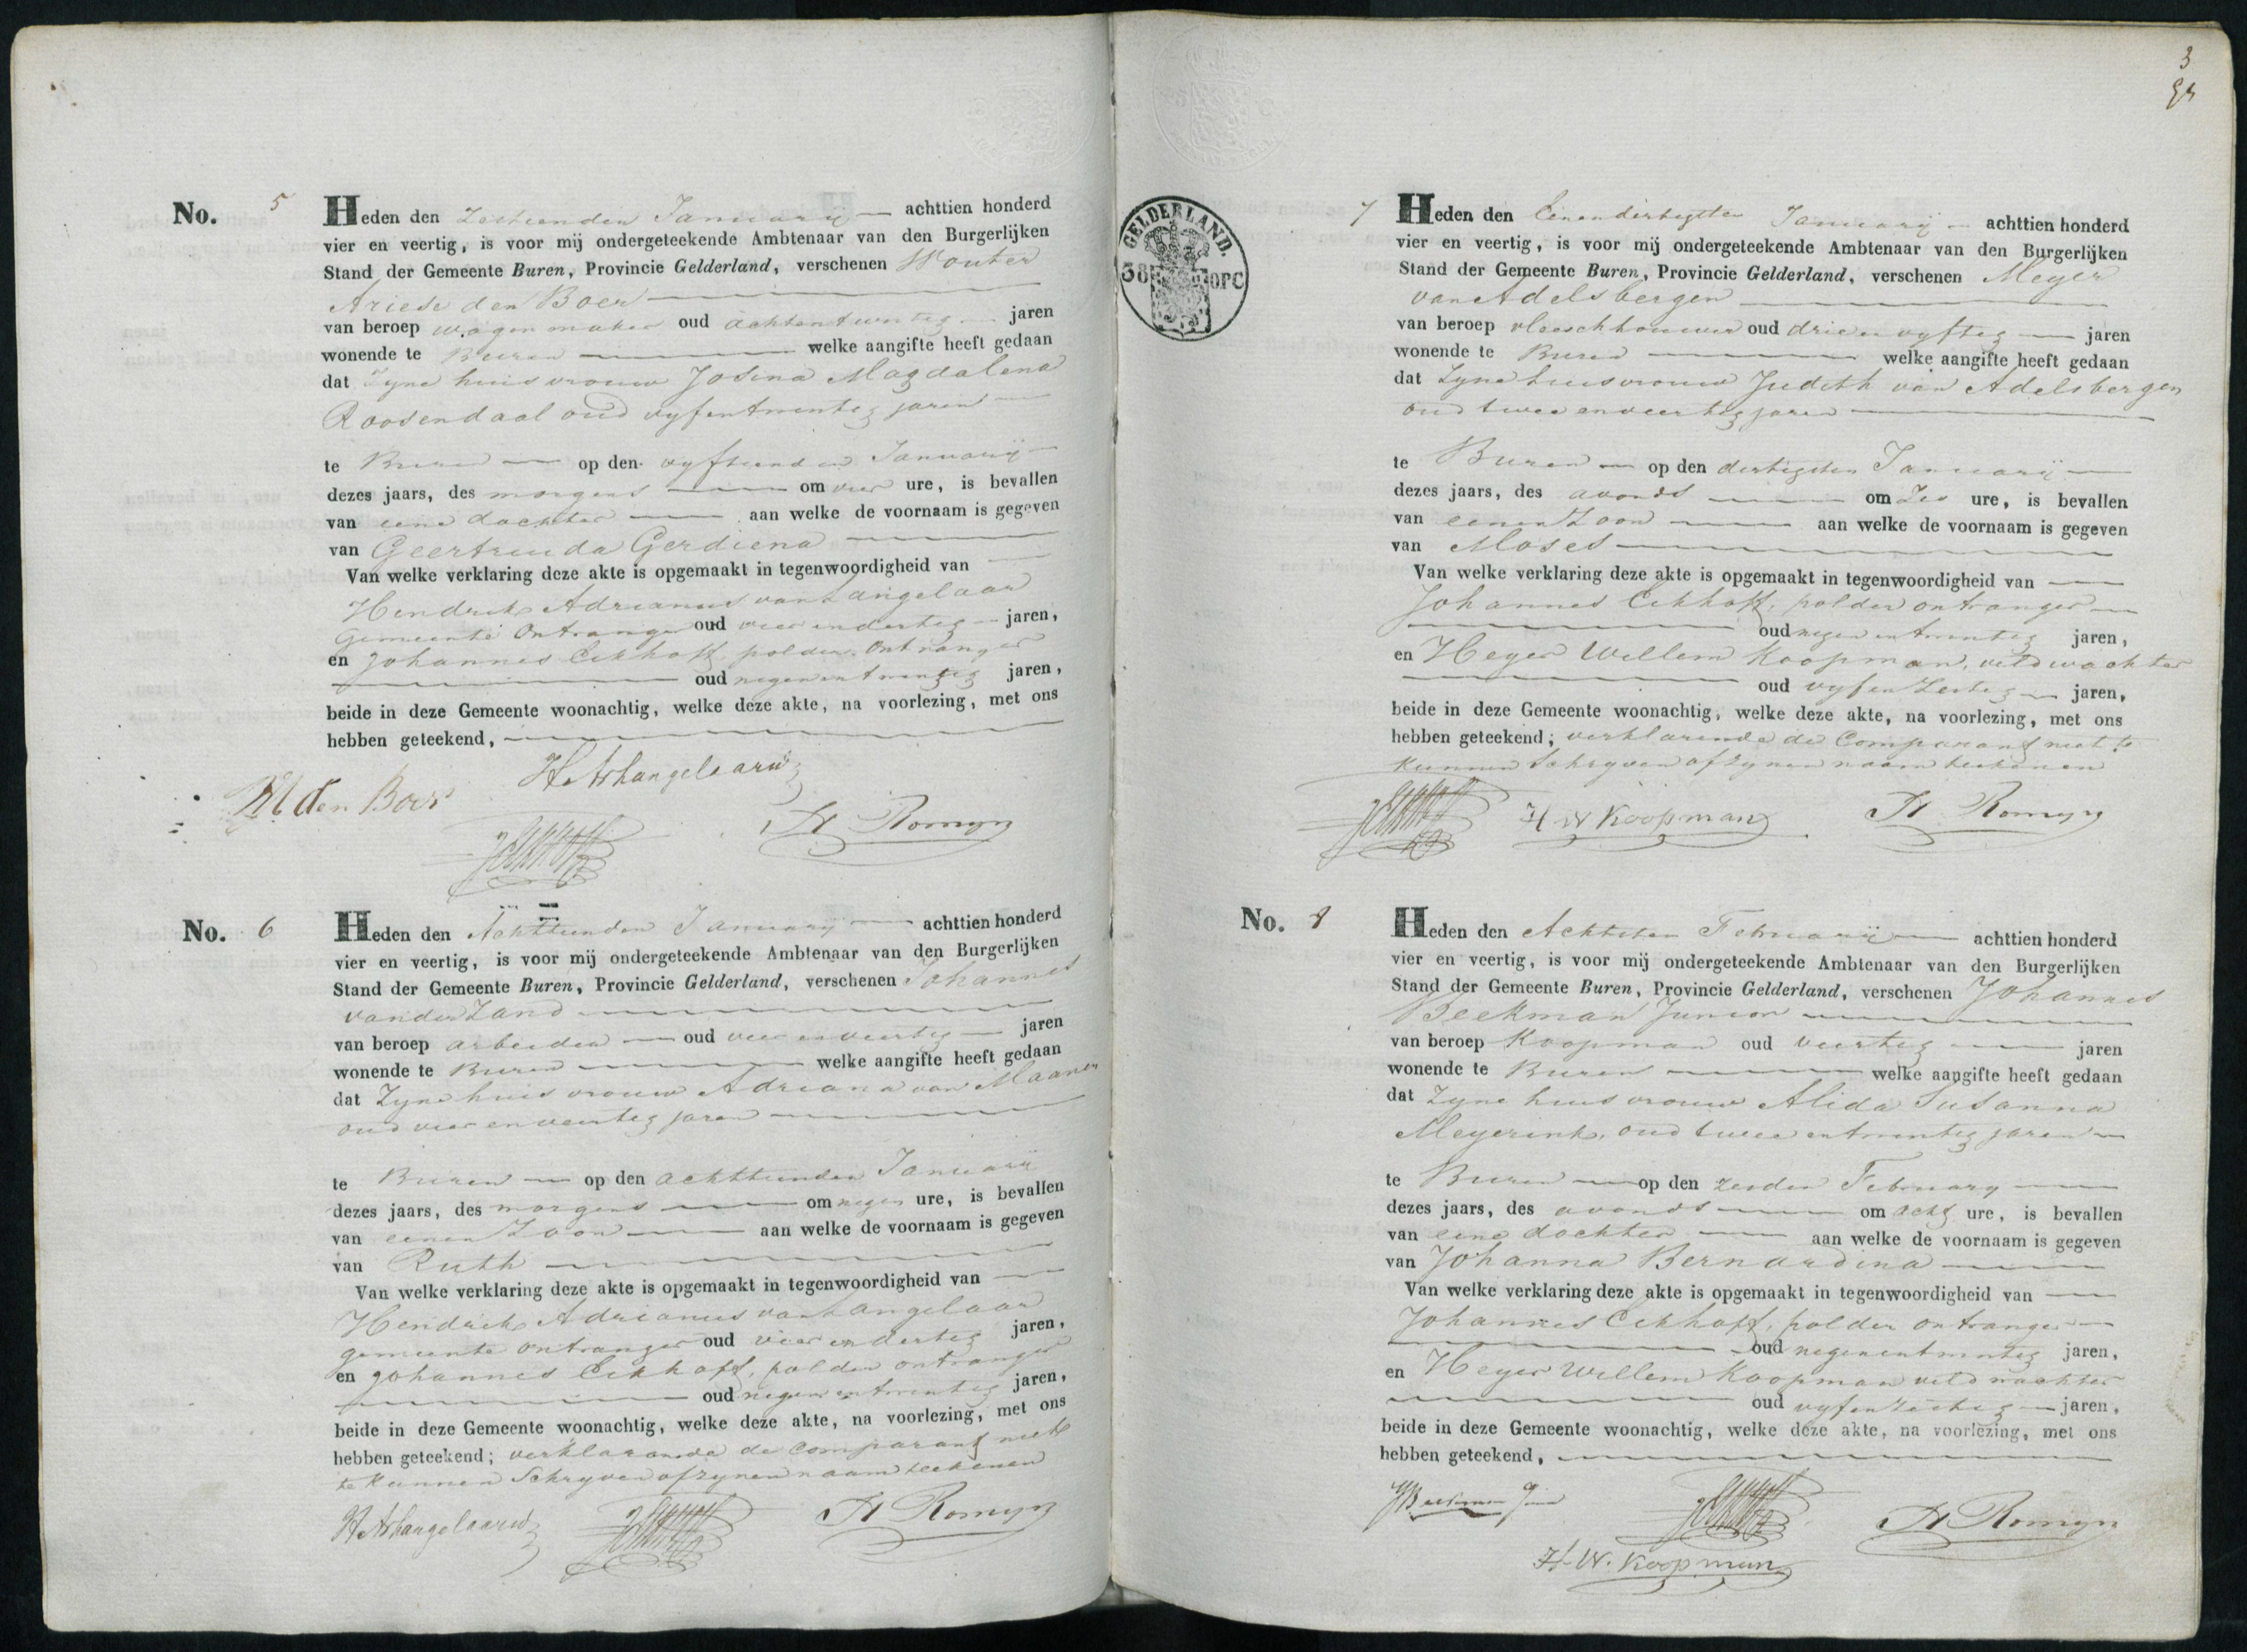 No. 5
Heden den Zestienden Januarij achttien honderd
vier en veertig, is voor mij ondergeteekende Ambtenaar van den Burgerlijken
Stand der Gemeente Buren, Provincie Gelderland, verschenen Wouter
Ariese den Boer
van beroep wagenmaker oud achtentwintig jaren
wonende te Buren welke aangifte heeft gedaan
dat Zyne huisvrouw Josina Magdalena
Roosendaal oud vyfentwintig jaren
te Buren op den vyftienden Januarij
dezes jaars, des morgens om vier ure, is bevallen
van eene dochter aan welke de voornaam is gegeven
van Geertruida Gerdiena
Van welke verklaring deze akte is opgemaakt in tegenwoordigheid van
Hendrik Adrianus van Langelaar
Gemeente Ontvanger oud vierendertig jaren,
en Johannes Eekhoff, polder Ontvanger
oud negenentwintig jaren,
beide in deze Gemeente woonachtig, welke deze akte, na voorlezing, met ons
hebben geteekend,
W den Boer
H Romyn
No. 6
Heden den Achttienden January achttien honderd
vier en veertig, is voor mij ondergeteekende Ambtenaar van den Burgerlijken
Stand der Gemeente Buren, Provincie Gelderland, verschenen Johannes
van der Zand
van beroep arbeider oud vier en veertig jaren
wonende te Buren welke aangifte heeft gedaan
dat Zyne huisvrouw Adriana van Maanen
oud vier en veertig jaren
te Buren op den achttienden Januarij
dezes jaars, des morgens om negen ure, is bevallen
van eenen Zoon aan welke de voornaam is gegeven
van Ruth
Van welke verklaring deze akte is opgemaakt in tegenwoordigheid van
Hendrik Adrianus van Langelaar
gemeente ontvanger oud vier en dertig jaren,
en Johannes Eekhoff, polder ontvanger
oud negen entwintig jaren,
beide in deze Gemeente woonachtig, welke deze akte, na voorlezing, met ons
hebben geteekend; verklarende de Comparant niet
te kunnen Schryven of zynen naam teekenen
H Romyn
3
GELDERLAND.
38 OPC
7
Heden den Eenendertigsten Januarij achttien honderd
vier en veertig, is voor mij ondergeteekende Ambtenaar van den Burgerlijken
Stand der Gemeente Buren, Provincie Gelderland, verschenen Meyer
van Adelsbergen
van beroep vleeschhouwer oud drie en vyftig jaren
wonende te Buren welke aangifte heeft gedaan
dat Zyne huisvrouw Judith van Adelsbergen
oud twee en veertig jaren
te Buren op den dertigsten Januarij
dezes jaars, des avonds om Zes ure, is bevallen
van eenen Zoon aan welke de voornaam is gegeven
van Moses
Van welke verklaring deze akte is opgemaakt in tegenwoordigheid van
Johannes Eekhoff, polder ontvanger
oud negen entwintig jaren,
en Heger Willem Koopman, veldwachter
oud vyfenzestig jaren,
beide in deze Gemeente woonachtig, welke deze akte, na voorlezing, met ons
hebben geteekend; verklarende de Comparant niet te
kunnen Schryven of zynen naam teekenen
H W Koopman H Romyn
No. 8
Heden den Achtsten Februarij achttien honderd
vier en veertig, is voor mij ondergeteekende Ambtenaar van den Burgerlijken
Stand der Gemeente Buren, Provincie Gelderland, verschenen Johannes
Beekman Junior
van beroep Koopman oud veertig jaren
wonende te Buren welke aangifte heeft gedaan
dat Zyne huisvrouw Alida Susanna
Meyerink, oud twee entwintig jaren
te Buren op den zesden February
dezes jaars, des avonds om acht ure, is bevallen
van eene dochter aan welke de voornaam is gegeven
van Johanna Bernardina
Van welke verklaring deze akte is opgemaakt in tegenwoordigheid van
Johannes Eekhoff, polder ontvanger
oud negenentwintig jaren,
en Heger Willem Koopman veldwachter
oud vyfenzestig jaren,
beide in deze Gemeente woonachtig, welke deze akte, na voorlezing, met ons
hebben geteekend,
JBeekman Jun
H Romyn
H. W. Koopman